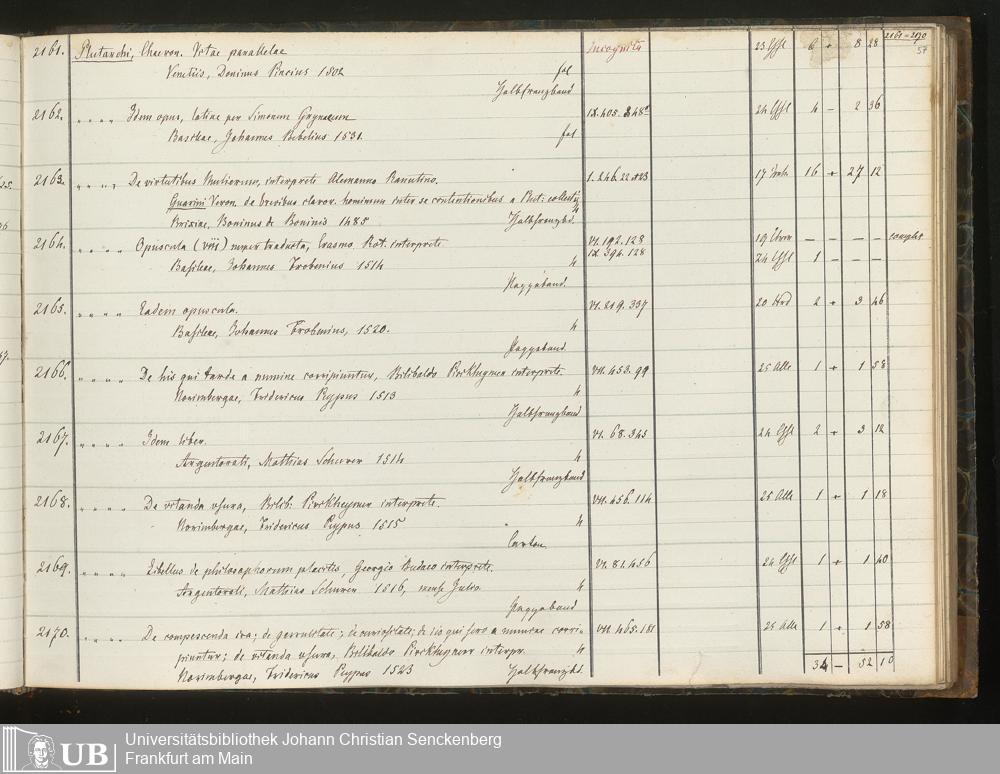 2161-2170
57
2161. Plutarchi, Chaeron. Vitae parallelae Incognita 6 + 8 28
Venetiis, Doninus Pincius 1502 fol
Halbfranzband
2162. " " " " Idem opus, latine per Simonem Grynaeum IX. 405. 4 – 2 36
Basileae, Johannes Bebelius 1531. fol
2163. " " " " De virtutibus Mulierum, interprete Alemanno Ranutino. 1. 246. 22 + 23 17 16 + 27 12
Guarini Veron. de brevibus claror. hominum inter se contentionibus a Plut. collectis
Brixiae, Boninus de Boninis 1485 Halbfranzbd.
2164. " " " " Opuscula (viii) nuper traducta, Erasmo Rot. interprete VI. 192. 128 19 – – – –
Basileae, Johannes Frobenius 1514 4 IX. 394. 128 24 1 – – –
Pappband.
2165. " " " " Eadem opuscula. VI. 219. 337 20 2 + 3 46
Basileae, Johannes Frobenius, 1520. 4
Pappband.
2166. " " " " De his qui tarde a numine corripiuntur, Bilibaldo Pirckheymer interprete. VII. 453. 99 25 Alle 1 + 1 58
Norimbergae, Fridericus Peypus 1513 4
Halbfranzband
2167. " " " " Idem liber. VI. 68. 345 24 2 + 3 12
Argentorati, Mathias Schurer 1514 4
Halbfranzband
2168. " " " " De vitanda usura, Bilib. Pirckheymer interprete. VII. 456. 114 25 Alle 1 + 1 18
Norimbergae, Fridericus Peypus 1515 4
Carton.
2169. " " " " Libellus de philosophorum placitis, Georgio Budaeo interprete. VI. 81. 456 24 1 + 1 40
Argentorati, Mathias Schurer 1516, mense Julio. 4
Pappband
2170. " " " " De compescenda ira; de garrulitate; de curiositate; de iis qui sero a numine corri- VII. 465. 181 25 Alle 1 + 1 58
piuntur; de vitanda usura, Bilibaldo Pirckheymer interpr. 4
Norimbergae, Fridericus Peypus 1523 Halbfranzbd.
34 – 52 10
UB
Universitätsbibliothek Johann Christian Senckenberg
Frankfurt am Main